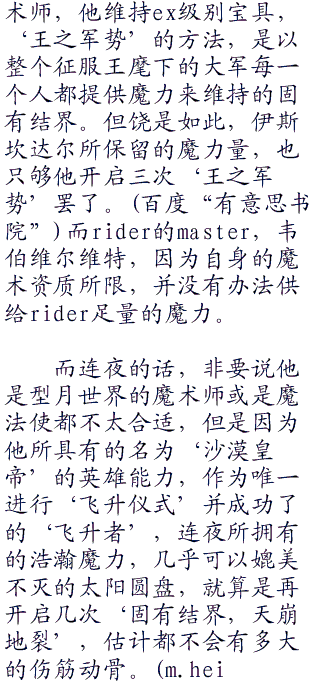 术师，他维持ex级别宝具，
‘王之军势’的方法，是以
整个征服王麾下的大军每一
个人都提供魔力来维持的固
有结界。但饶是如此，伊斯
坎达尔所保留的魔力量，也
只够他开启三次‘王之军
势’罢了。(百度“有意思书
院”)而rider的master，韦
伯维尔维特，因为自身的魔
术资质所限，并没有办法供
给rider足量的魔力。
而连夜的话，非要说他
是型月世界的魔术师或是魔
法使都不太合适，但是因为
他所具有的名为‘沙漠皇
帝’的英雄能力，作为唯一
进行‘飞升仪式’并成功了
的‘飞升者’，连夜所拥有
的浩瀚魔力，几乎可以媲美
不灭的太阳圆盘，就算是再
开启几次‘固有结界，天崩
地裂’，估计都不会有多大
的伤筋动骨。(m.hei